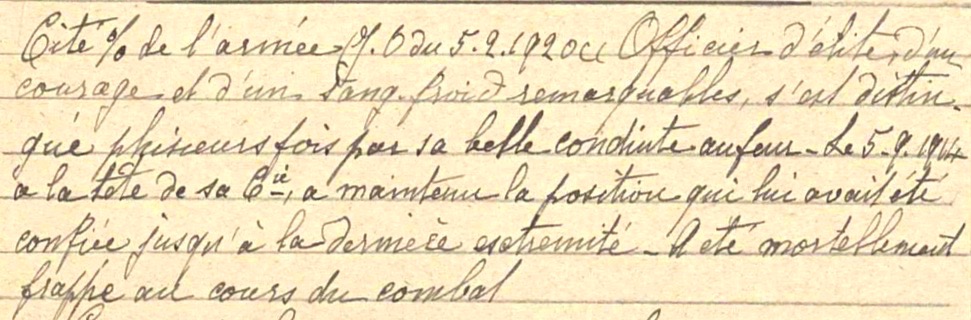 Cité % de l'armée J.O du 5.2.1920 « Officier d'élite, d'un
courage et d'un sang-froid remarquables, s'est distin-
gué plusieurs fois par sa belle conduite au feu - Le 5-9-1914
a la tête de sa Cie, a maintenu la position qui lui avait été
confiée jusqu'à la dernière extremité - A été mortellement
frappé au cours du combat